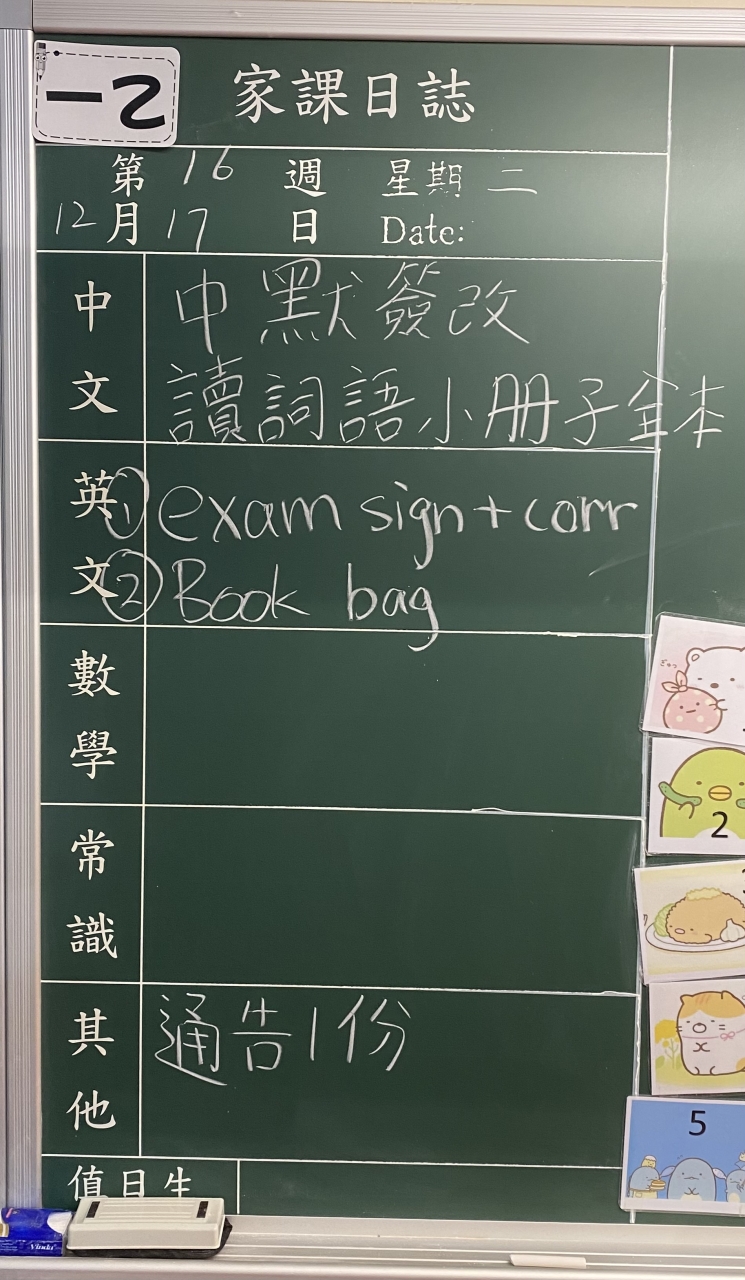 一2
家課日誌
第 16 週 星期 二
12月 17 日 Date:
中文
中默簽改
讀詞語小册子全本
英文
① exam sign + corr
② Book bag
數學
常識
其他
通告1份
值日生
2
5